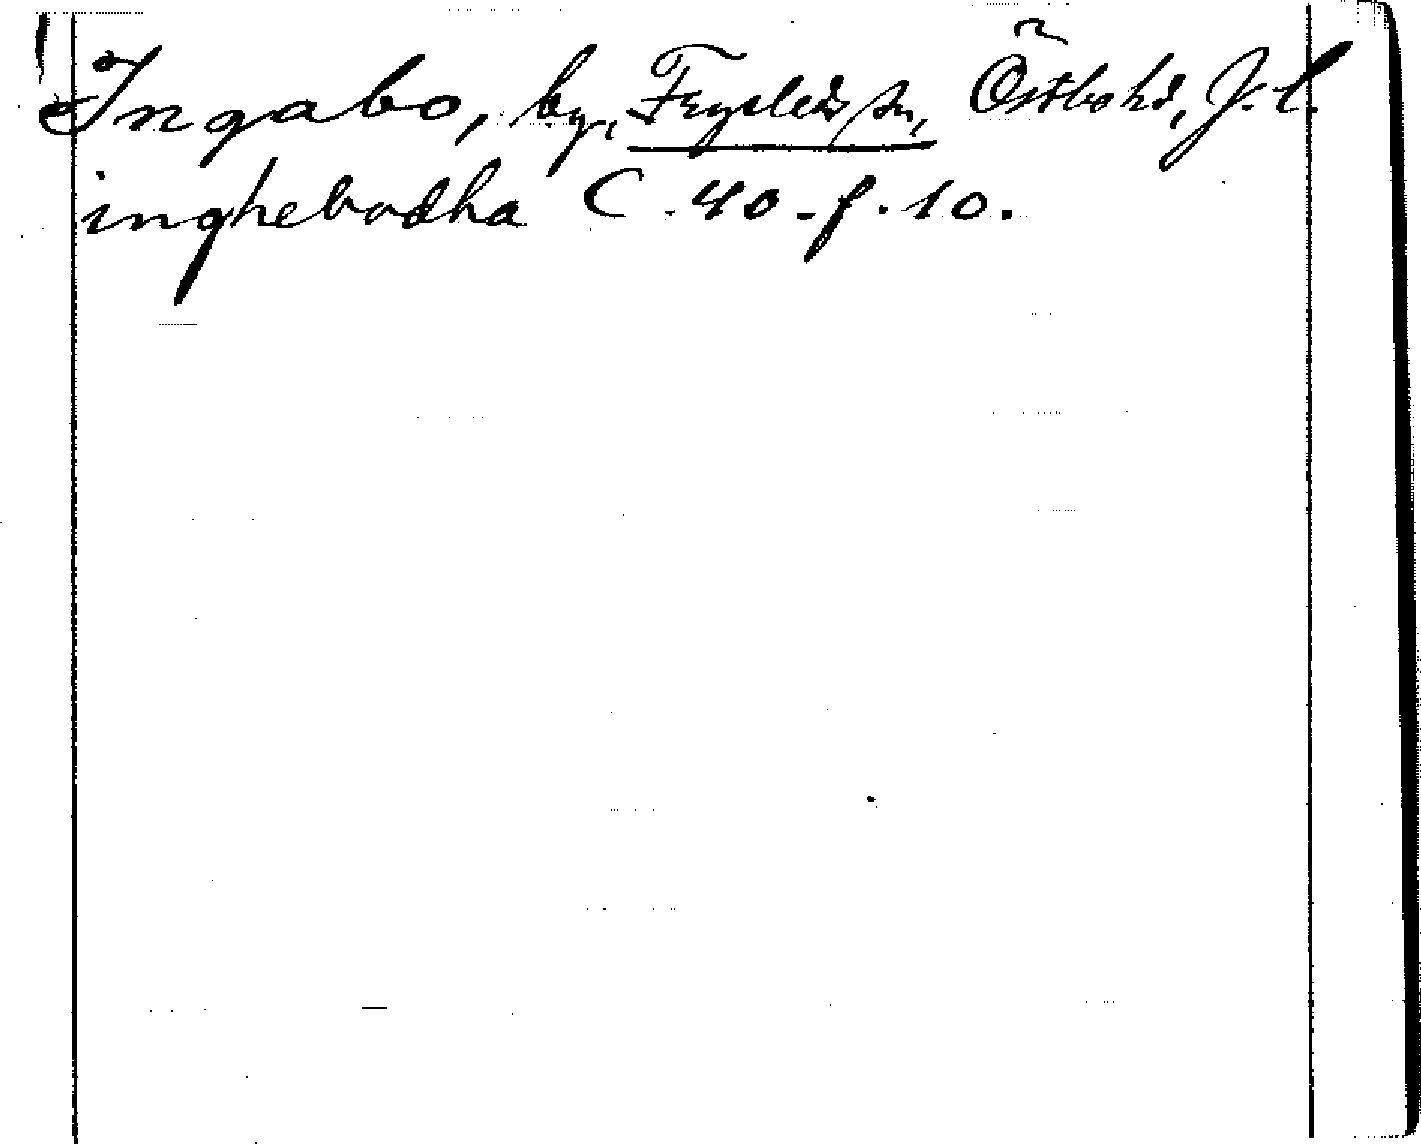 Ingabo, by, Tryseled sn, Östbo hd, J. l.
inghebodha C. 40. f. 10.